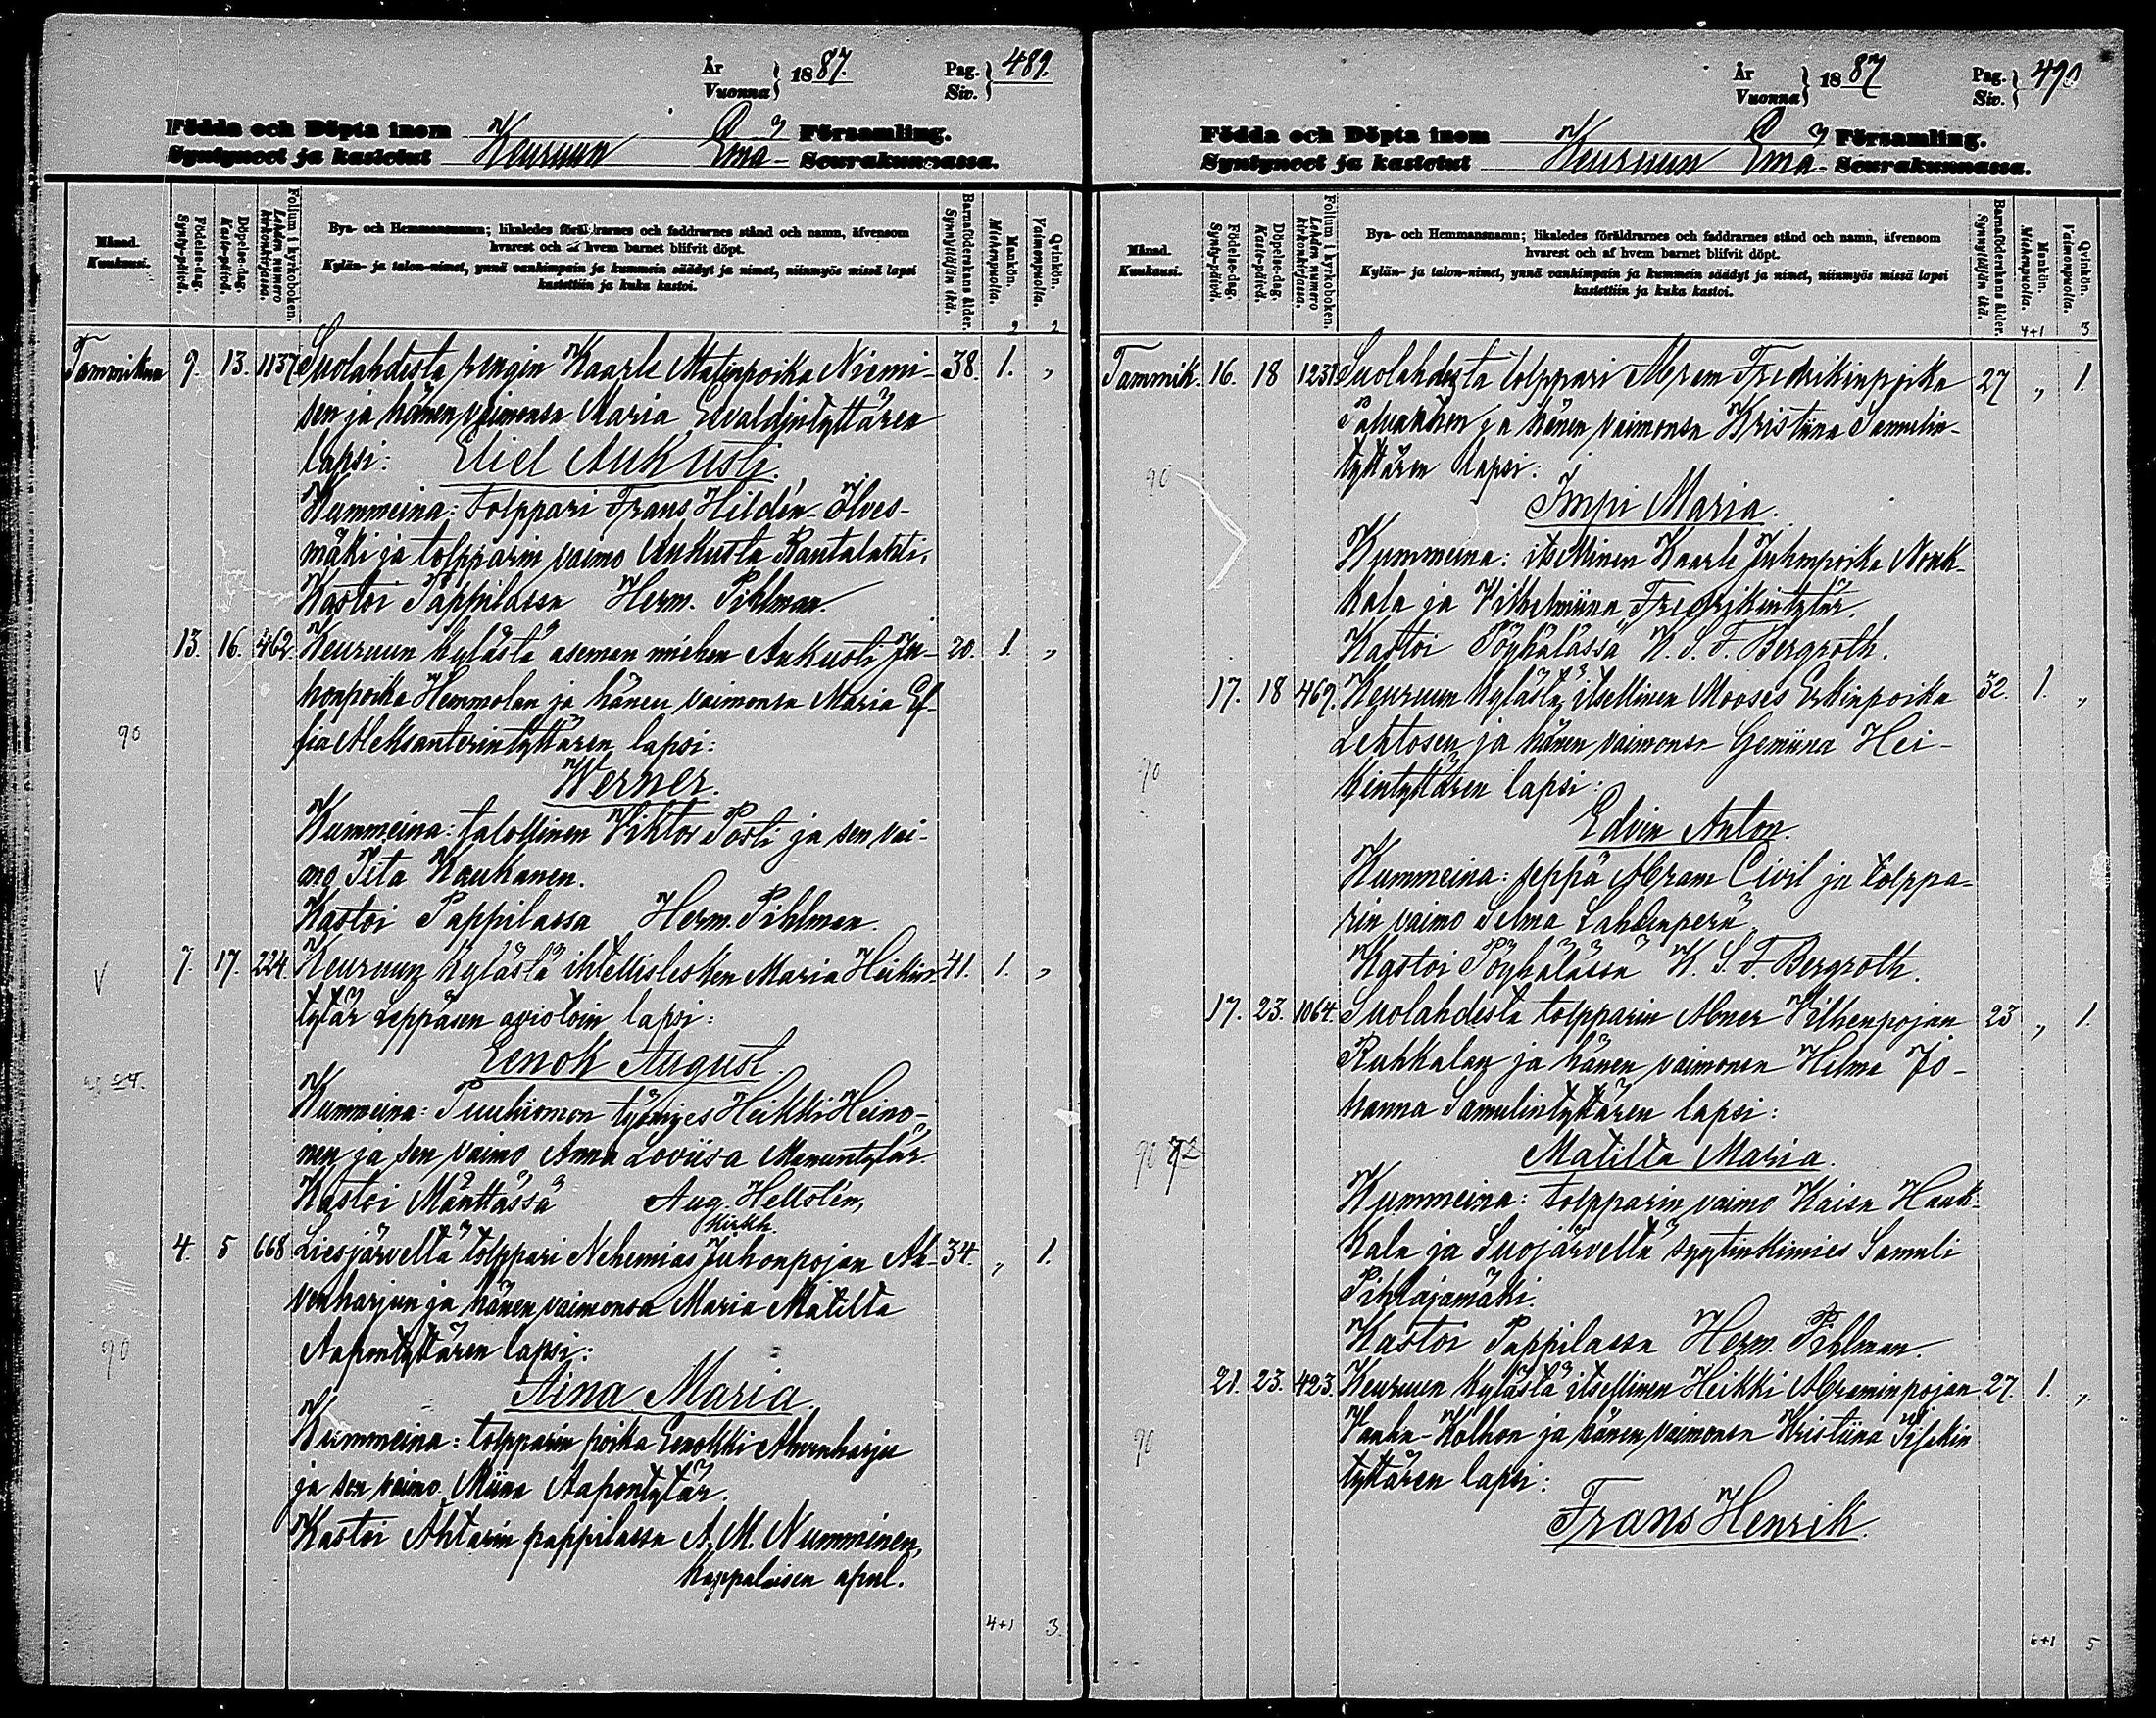 År
Vuonna } 1887. Pag.
Siv. } 489.
Födda och Döpta inom
Syntyneet ja kastetut Keuruun Emä- Församling.
Seurakunnassa.
Månad.
Kuukausi.
Födelse-dag.
Synty-päivä.
Döpelse-dag.
Kaste-päivä.
Folium i kyrkoboken.
Lehden numero kirkonkirjassa.
Bya- och Hemmansnamn; likaledes föräldrarnes och faddrarnes stånd och namn, äfvensom
hvarest och af hvem barnet blifvit döpt.
Kylän- ja talon-nimet, ynnä vanhimpain ja kummein säädyt ja nimet, niinmyös missä lapsi
kastettiin ja kuka kastoi.
Barnaföderskans ålder.
Synnyttäjän ikä.
Mankön.
Miehenpuolia.
Qvinkön.
Vaimonpuolia.
2 2
Tammikuu 9. 13. 1137 Suolahdesta rengin Kaarle Matinpoika Niemi- 38. 1. „
sen ja hänen vaimonsa Maria Edvaldintyttären
lapsi: Eliel Aukusti.
Kummeina: tolppari Frans Hildén-Ölves-
mäki ja tolpparin vaimo Aukusta Rantalahti.
Kastoi Pappilassa Herm. Pihlman.
13. 16. 462. Keuruun kylästä aseman miehen Aukusti Ju- 20. 1. „
honpoika Hemmolan ja hänen vaimonsa Maria Ef-
fia Aleksanterintyttären lapsi:
90
Werner.
Kummeina: talollinen Viktor Posti ja sen vai-
mo Iita Kaukanen.
Kastoi Pappilassa Herm. Pihlman.
V 7. 17. 224. Keuruun kylästä ihtellislesken Maria Heikin- 41. 1. „
tytär Leppäsen aviotoin lapsi:
Eenok August.
Kummeina: Puuhiomon työmies Heikki Heino-
nen ja sen vaimo Anna Loviisa Manuntytär.
Kastoi Mänttässä Aug. Hellstén,
kirkh.
4. 5 668 Liesjärveltä tolppari Nehemias Juhonpojan Ah- 34. „ 1.
venharjun ja hänen vaimonsa Maria Matilta
Aapontyttären lapsi:
90
Aina Maria.
Kummeina: tolpparin poika Eenokki Ahvenharju
ja sen vaimo Miina Aapontytär.
Kastoi Ähtärin pappilassa A. M. Numminen,
Kappalaisen apul.
4+1 3.
År
Vuonna } 1887 Pag.
Siv. } 490
Födda och Döpta inom
Syntyneet ja kastetut Keuruun Emä- Församling.
Seurakunnassa.
Månad.
Kuukausi.
Födelse-dag.
Synty-päivä.
Döpelse-dag.
Kaste-päivä.
Folium i kyrkoboken.
Lehden numero kirkonkirjassa.
Bya- och Hemmansnamn; likaledes föräldrarnes och faddrarnes stånd och namn, äfvensom
hvarest och af hvem barnet blifvit döpt.
Kylän- ja talon-nimet, ynnä vanhimpain ja kummein säädyt ja nimet, niinmyös missä lapsi
kastettiin ja kuka kastoi.
Barnaföderskans ålder.
Synnyttäjän ikä.
Mankön.
Miehenpuolia.
Qvinkön.
Vaimonpuolia.
4+1 3
Tammik. 16. 18 1231 Suolahdesta tolppari Abram Fredrikinpoika 27 „ 1.
ja hänen vaimonsa Kristiina Samulin-
tyttären lapsi:
90
Impi Maria.
Kummeina: itsellinen Kaarle Juhonpoika Nouk-
kala ja Vilhelmiina Fredrikintytär.
Kastoi Pöyhälässä K. S. F. Bergroth.
17. 18 469. Keuruun kylästä, itsellinen Mooses Erkinpoika 32. 1. „
Lehtosen ja hänen vaimonsa Gemiina Hei-
90
kintyttären lapsi:
Edvin Anton.
Kummeina: seppä Abram Civil ja tolppa-
rin vaimo Selma Lahdenperä.
Kastoi Pöyhälässä K. S. F. Bergroth.
17. 23. 1064. Suolahdesta tolpparin Abner Vilhenpojan 23 „ 1.
Ruhkalan ja hänen vaimonsa Hilma Jo-
hanna Samulintyttären lapsi:
90
Matilta Maria.
Kummeina: tolpparin vaimo Kaisa Hauk-
kala ja Suojärveltä syytinkimies Samuli
Pihlajamäki.
Kastoi Pappilassa Herm. Pihlman.
21. 23. 423. Keuruun kylästä itsellinen Heikki Abraminpojan 27. 1. „
Vanha-Kolhon ja hänen vaimonsa Kristiina
90
tyttären lapsi:
Frans Henrik.
6+1 5